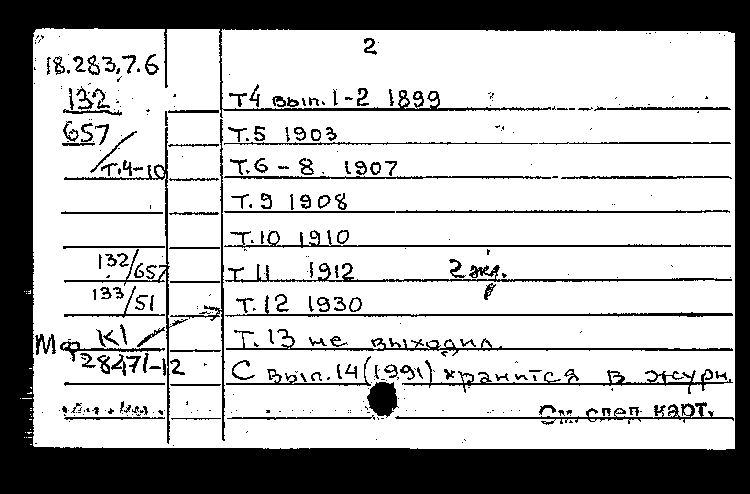 2
18.283.7.6
132 Т4 вып.1-2 1899
657 Т.5 1903
Т.4-10 Т.6-8. 1907
Т.9 1908
Т.10 1910
132/657 Т 11 1912 2 экз.
133/51 Т.12 1930
Мф К1 Т.13 не выходил.
28471-12 С вып.14(1991) хранится в журн.
См. след карт.